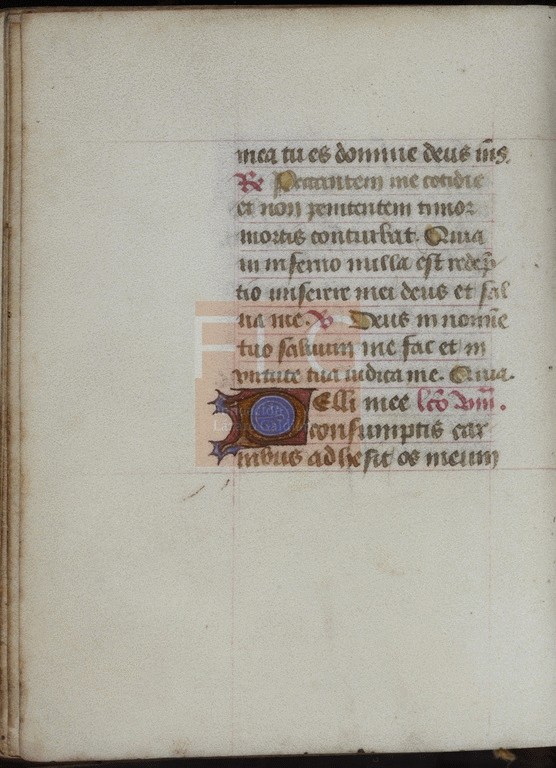 mea tu es domine deus m̄s.
R Peccantem me cotidie
et non penitentem timor
mortis conturbat. Quia
in inferno nulla est redēp
tio miserere mei deus et sal
ua me. V Deus in nomine
tuo saluum me fac et in
virtute tua iudica me. Quia.
Pelli mee lc̄o viii.
consumptis car
nibus adhesit os meum